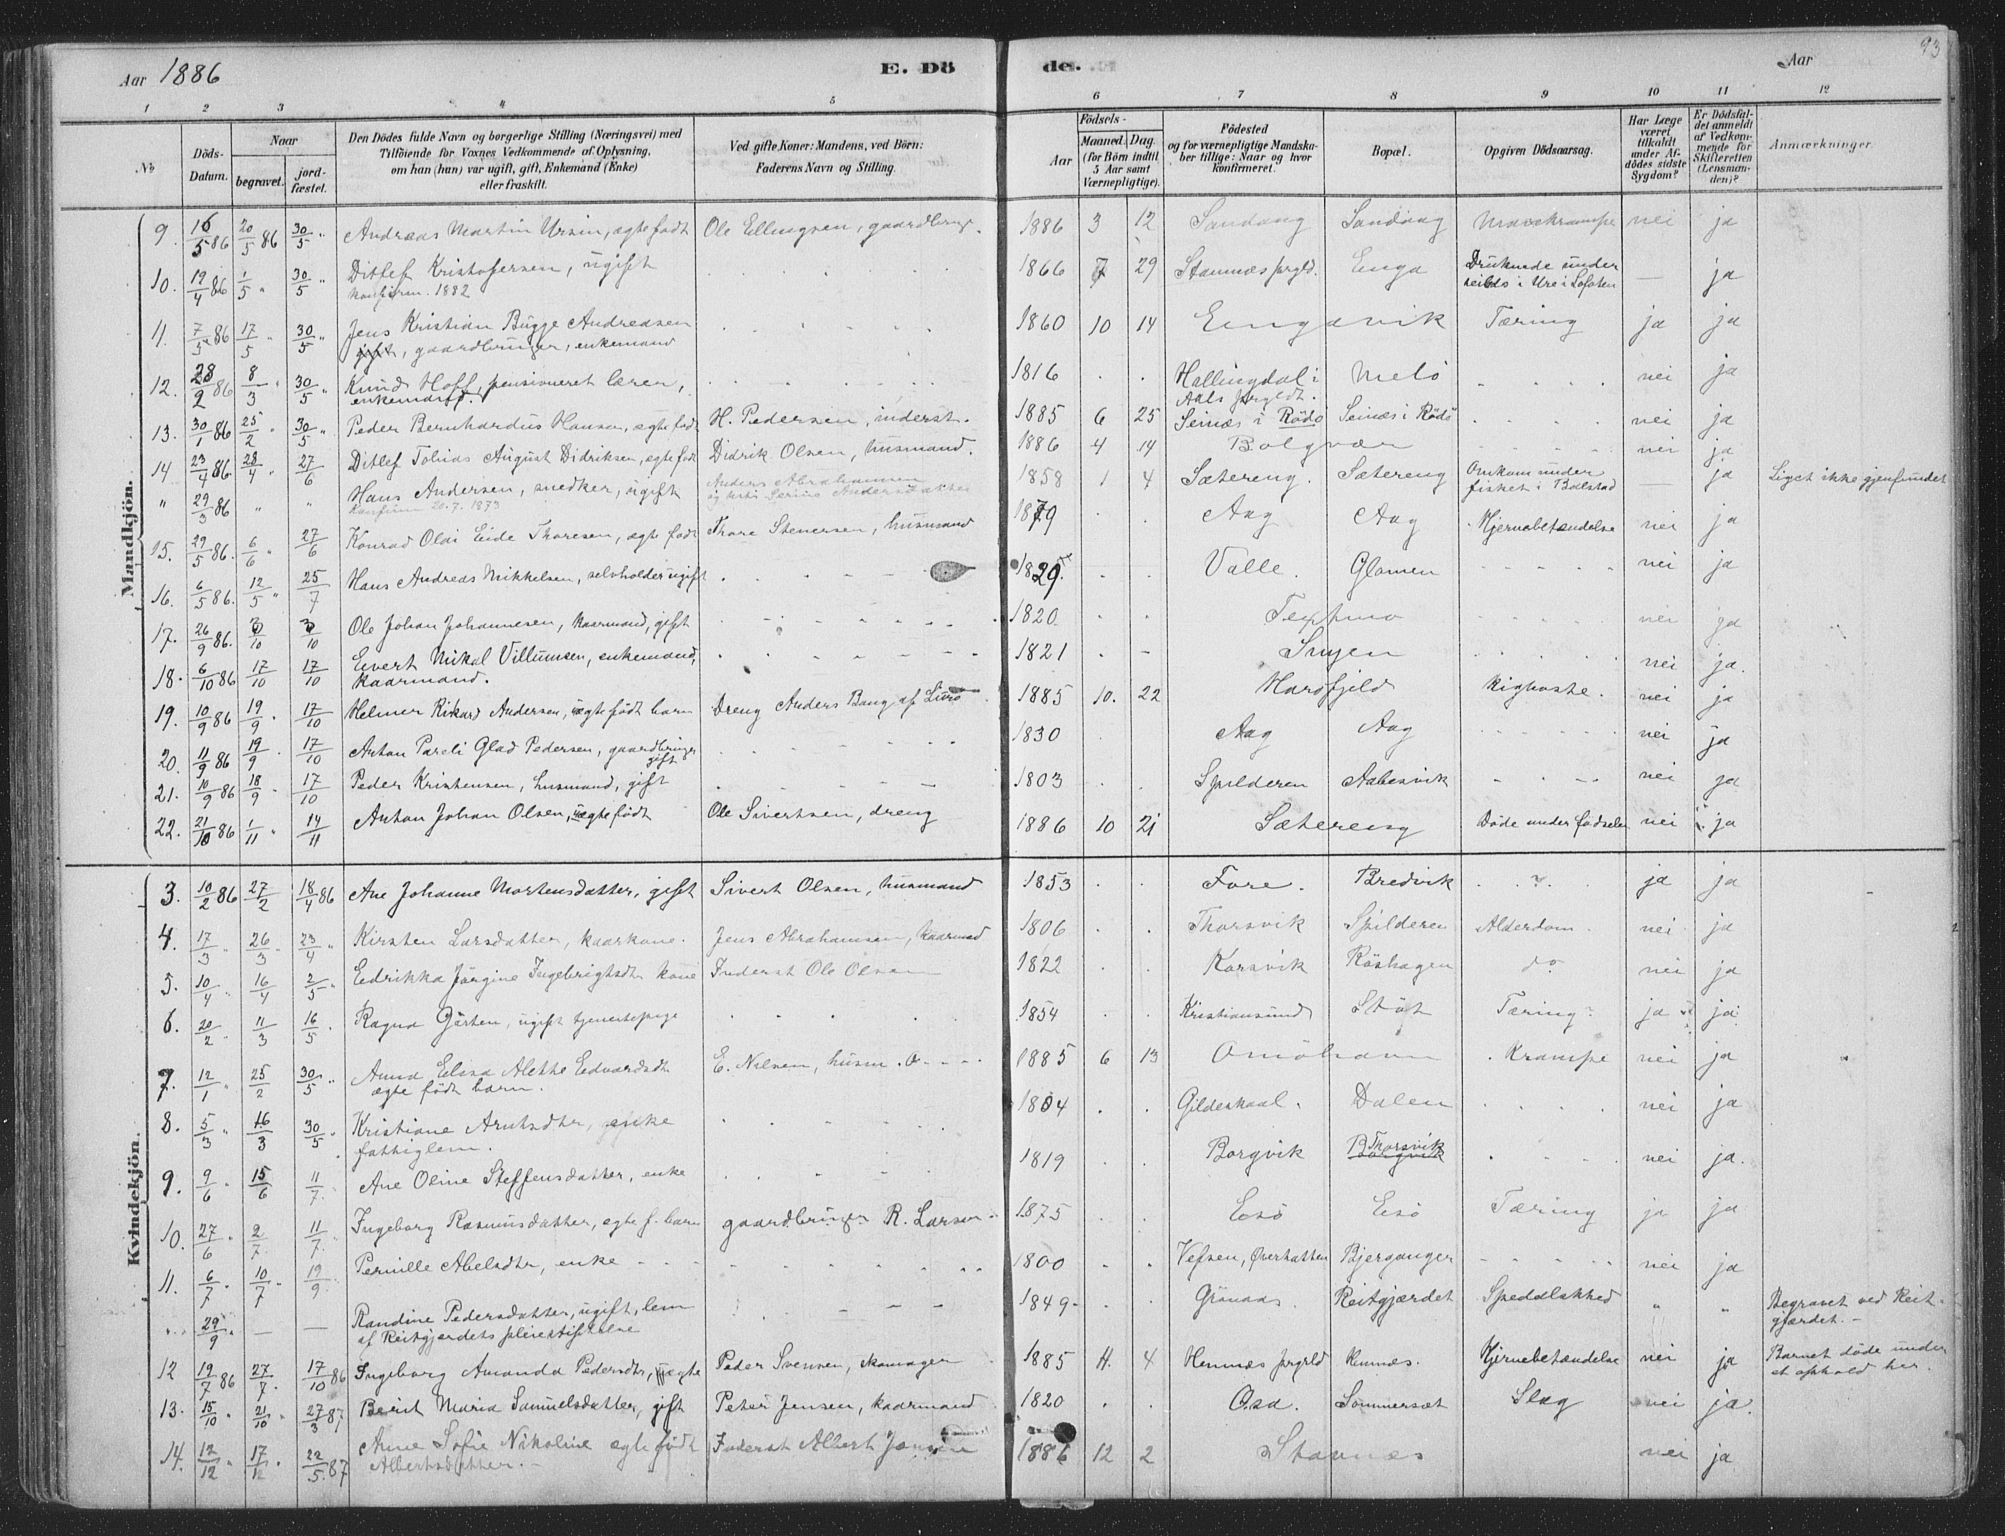 Aar 1886
E. Dö
de.
Aar
93
1 2 3 4 5 6 7 8 9 10 11 12
No
Döds-
Datum.
Naar
begravet.
jord-
fæstet.
Den Dödes fulde Navn og borgerlige Stilling (Næringsvei) med
Tilföiende for Voxnes Vedkommende af Oplysning,
om han (hun) var ugift, gift, Enkemand (Enke)
eller fraskilt.
Ved gifte Koner: Mandens, ved Börn:
Faderens Navn og Stilling.
Födsels-
Aar
Maaned.
Dag.
(for Börn indtil
5 Aar samt
Værnepligtige).
Födested
og for værnepligtige Mandska-
ber tillige: Naar og hvor
konfirmeret.
Bopæl.
Opgiven Dödsaarsag.
Har Læge
været
tilkaldt
under Af-
dödes sidste
Sygdom?
Er Dödsfal-
det anmeldt
af Vedkom-
mende for
Skifteretten
(Lensman-
den)?
Anmærkninger.
Mandkjön.
9. 16/5 86 20/5 86 30/5 " Andreas Martin Ursin, ægte født Ole Ellingsen, gaardbruger 1886 3 12 Sandvaag Sandvaag Mavekrampe nei ja
10. 19/4 86 1/5 " 30/5 " Ditlef Kristofersen, ugift 1866 7 29 Stavnæs prgld. Enga Druknede under — ja
konfirm. 1882 seilads i Ure i Lofoten
11. 7/5 86 17/5 " 30/5 " Jens Kristian Bugge Andreasen 1860 10 14 Engavik Tæring ja ja
gift, gaardbruger, enkemand
12. 28/2 86 8/3 " 30/5 " Knud Hoff, pensioneret lærer, 1816 . . Hallingdal i Melö nei ja
enkemand. Aals prgldt.
13. 30/1 86 25/2 " 30/5 " Peder Bernhardus Hansen, ægte født H. Pedersen, inderst. 1885 6 25 Seinæs i Rödö Seinæs i Rödö nei ja
14 23/4 86 28/4 " 27/6 Ditlef Tobias August Didriksen, ægte født Didrik Olsen, husmand. 1886 4 14 Bolgvær nei ja
" 29/3 86 " " Hans Andersen, snedker, ugift Anders Abrahamsen 1858 1 4 Sætereng. Sætereng Omkom under — ja Liget ikke gjenfundet
Konfirm 20.7.1873 fisket i Balstad
15. 29/5 86. 6/6 " 27/6 Konrad Olai Eide Thoresen, ægte født Thore Stenersen, husmand 1879 Aag Aag Hjernebetændelse nei ja
16. 6/5 86. 12/5 " 25/7 Hans Andreas Mikkelsen, selvholder ugift 1829. Valle. Glomen nei ja
17. 26/9 86. 3/10 3/10 Ole Johan Johannesen, kaarmand, gift 1820 nei ja
18. 6/10 86 17/10 17/10 Eivert Nikal Villumsen, enkemand, 1821 nei ja.
kaarmand.
19. 10/9 86 19/9 . 17/10 Helmer Rikard Andersen, uægte født barn Dreng Anders Bang af Lurö 1885 10. 22 Hardfjeld Kighoste. nei ja
20. 11/9 86 19/9 . 17/10 Anton Pareli Glad Pedersen, gaardbruger 1830 Aag Aag nei ja
gift
21. 10/9 86 18/9 . 17/10 Peder Kristensen, husmand, gift 1803 Spilderen Aabesvik nei ja
22. 21/10 86 1/11 " 14/11 Anton Johan Olsen, uægte født Ole Sivertsen, dreng 1886 10 21 Sætereng Döde under fødselen nei ja
Kvindekjön.
3. 10/2 86 27/2 18/4 86 Ane Johanne Mortensdatter, gift Sivert Olsen, husmand 1853 . . Fore. Bredvik . ?. ja ja
4. 17/3 " 26/3 " 23/4 " Kirsten Larsdatter, kaarkone. Jens Abrahamsen, kaarmand 1806 . . Thorsvik Spilderen Alderdom. nei ja
5. 10/4 " 16/4 2/5 " Edrikka Jörgine Ingebrigtsdtr kone Inderst Ole Olsen 1822 . . Korsvik Röshagen do nei ja
6. 20/2 11/3 16/5 Ragna Gärten, ugift tjenestepige 1854 Kristiansund Stöt Tæring ja ja
7. 12/1 " 25/2 30/5 " Anna Elisa Alethe Edvardsdt E. Nilsen, husm. 1885 6 13 Omöhavn Krampe nei ja
ægte født barn.
8. 5/3 " 16/3 30/5 Kristiane Arntsdtr, enke 1804 . . Gildeskaal. Dalen nei ja
fattiglem.
9. 9/6 " 15/6 11/7 Ane Oline Steffensdatter, enke 1819 . . Borgvik Borgvik Thorsvik nei ja.
10. 27/6 " 2/7 11/7. Ingeborg Rasmusdatter, ægte f. barn gaardbruger R. Larsen 1875 . . Esö Esö Tæring ja ja
11. 6/7 . 10/7 " 19/9 Pernille Abelsdtr, enke 1800 . . Vefsen, Øverhatten Bjergangen nei ja
" 29/9 " — — Randine Pedersdatter, ugift, lem 1849 . . Grönaas Reitgjærdet Spedalskhed " " Begravet ved Reit-
af Reitgjerdets pleiestiftelse gjærdet.
12 19/7 86 27/7. 17/10 86 Ingeborg Amanda Pedersdtr, uægte Peder Svensen, skomager 1885 4. 4 Hemnæs prgld Hemnæs. Hjernebetændelse nei ja Barnet döde under
et ophold her.
13. 15/10 " 21/10 " 27/3 87 Berit Maria Samuelsdatter, gift Peter Jensen, kaarmand 1820 . . Osa. Sommersæt Slag nei ja.
14. 12/12 " 17/12 " 22/5. 87 Anne Sofie Nikoline ægte født Inderst Albert Jensen 1886 12 2 Stavnæs nei ja
Albertsdatter.